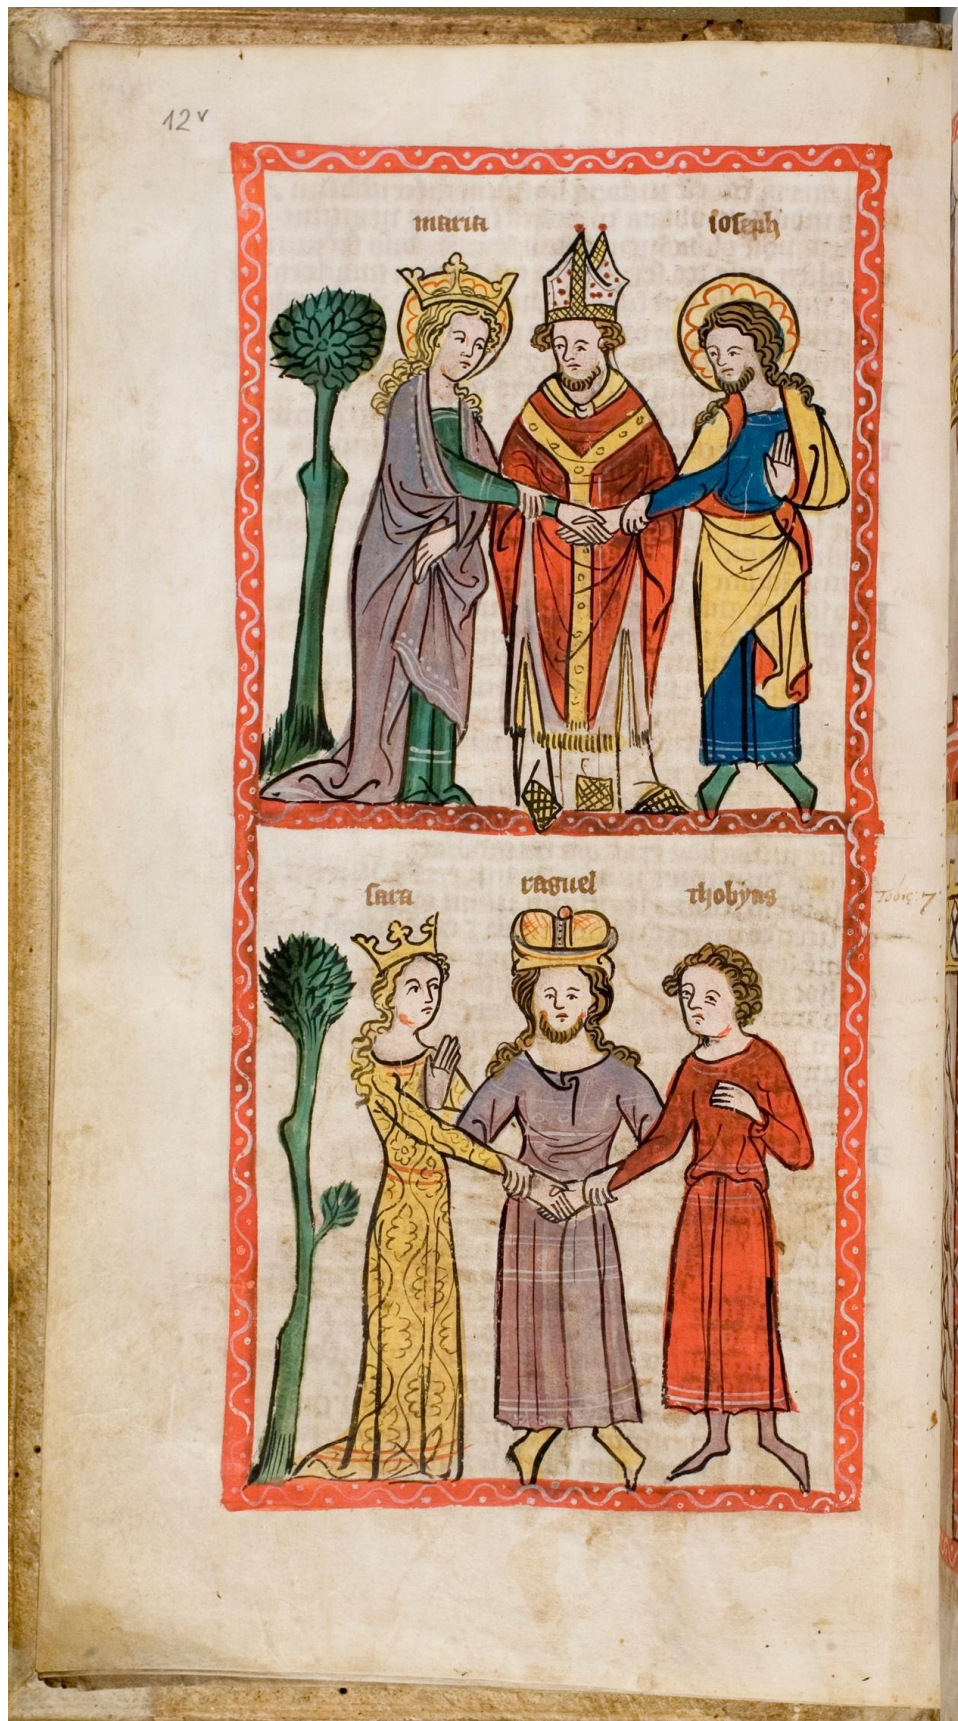 12v
maria ioseph
sara raguel thobyas
Tobie: 7